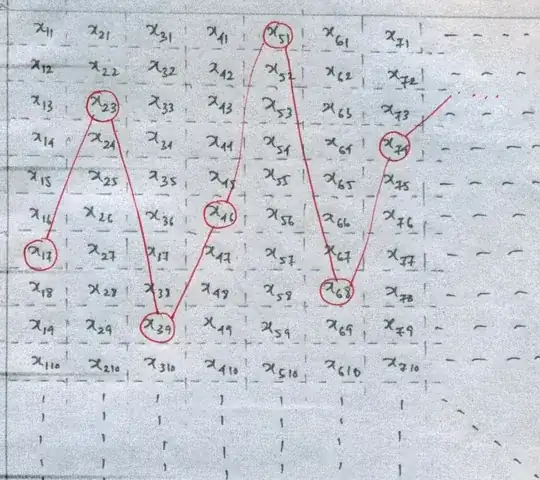 x11 x21 x31 x41 x51 x61 x71
x12 x22 x32 x42 x52 x62 x72
x13 x23 x33 x43 x53 x63 x73
x14 x24 x34 x44 x54 x64 x74
x15 x25 x35 x45 x55 x65 x75
x16 x26 x36 x46 x56 x66 x76
x17 x27 x17 x47 x57 x67 x77
x18 x28 x38 x48 x58 x68 x78
x19 x29 x39 x49 x59 x69 x79
x110 x210 x310 x410 x510 x610 x710